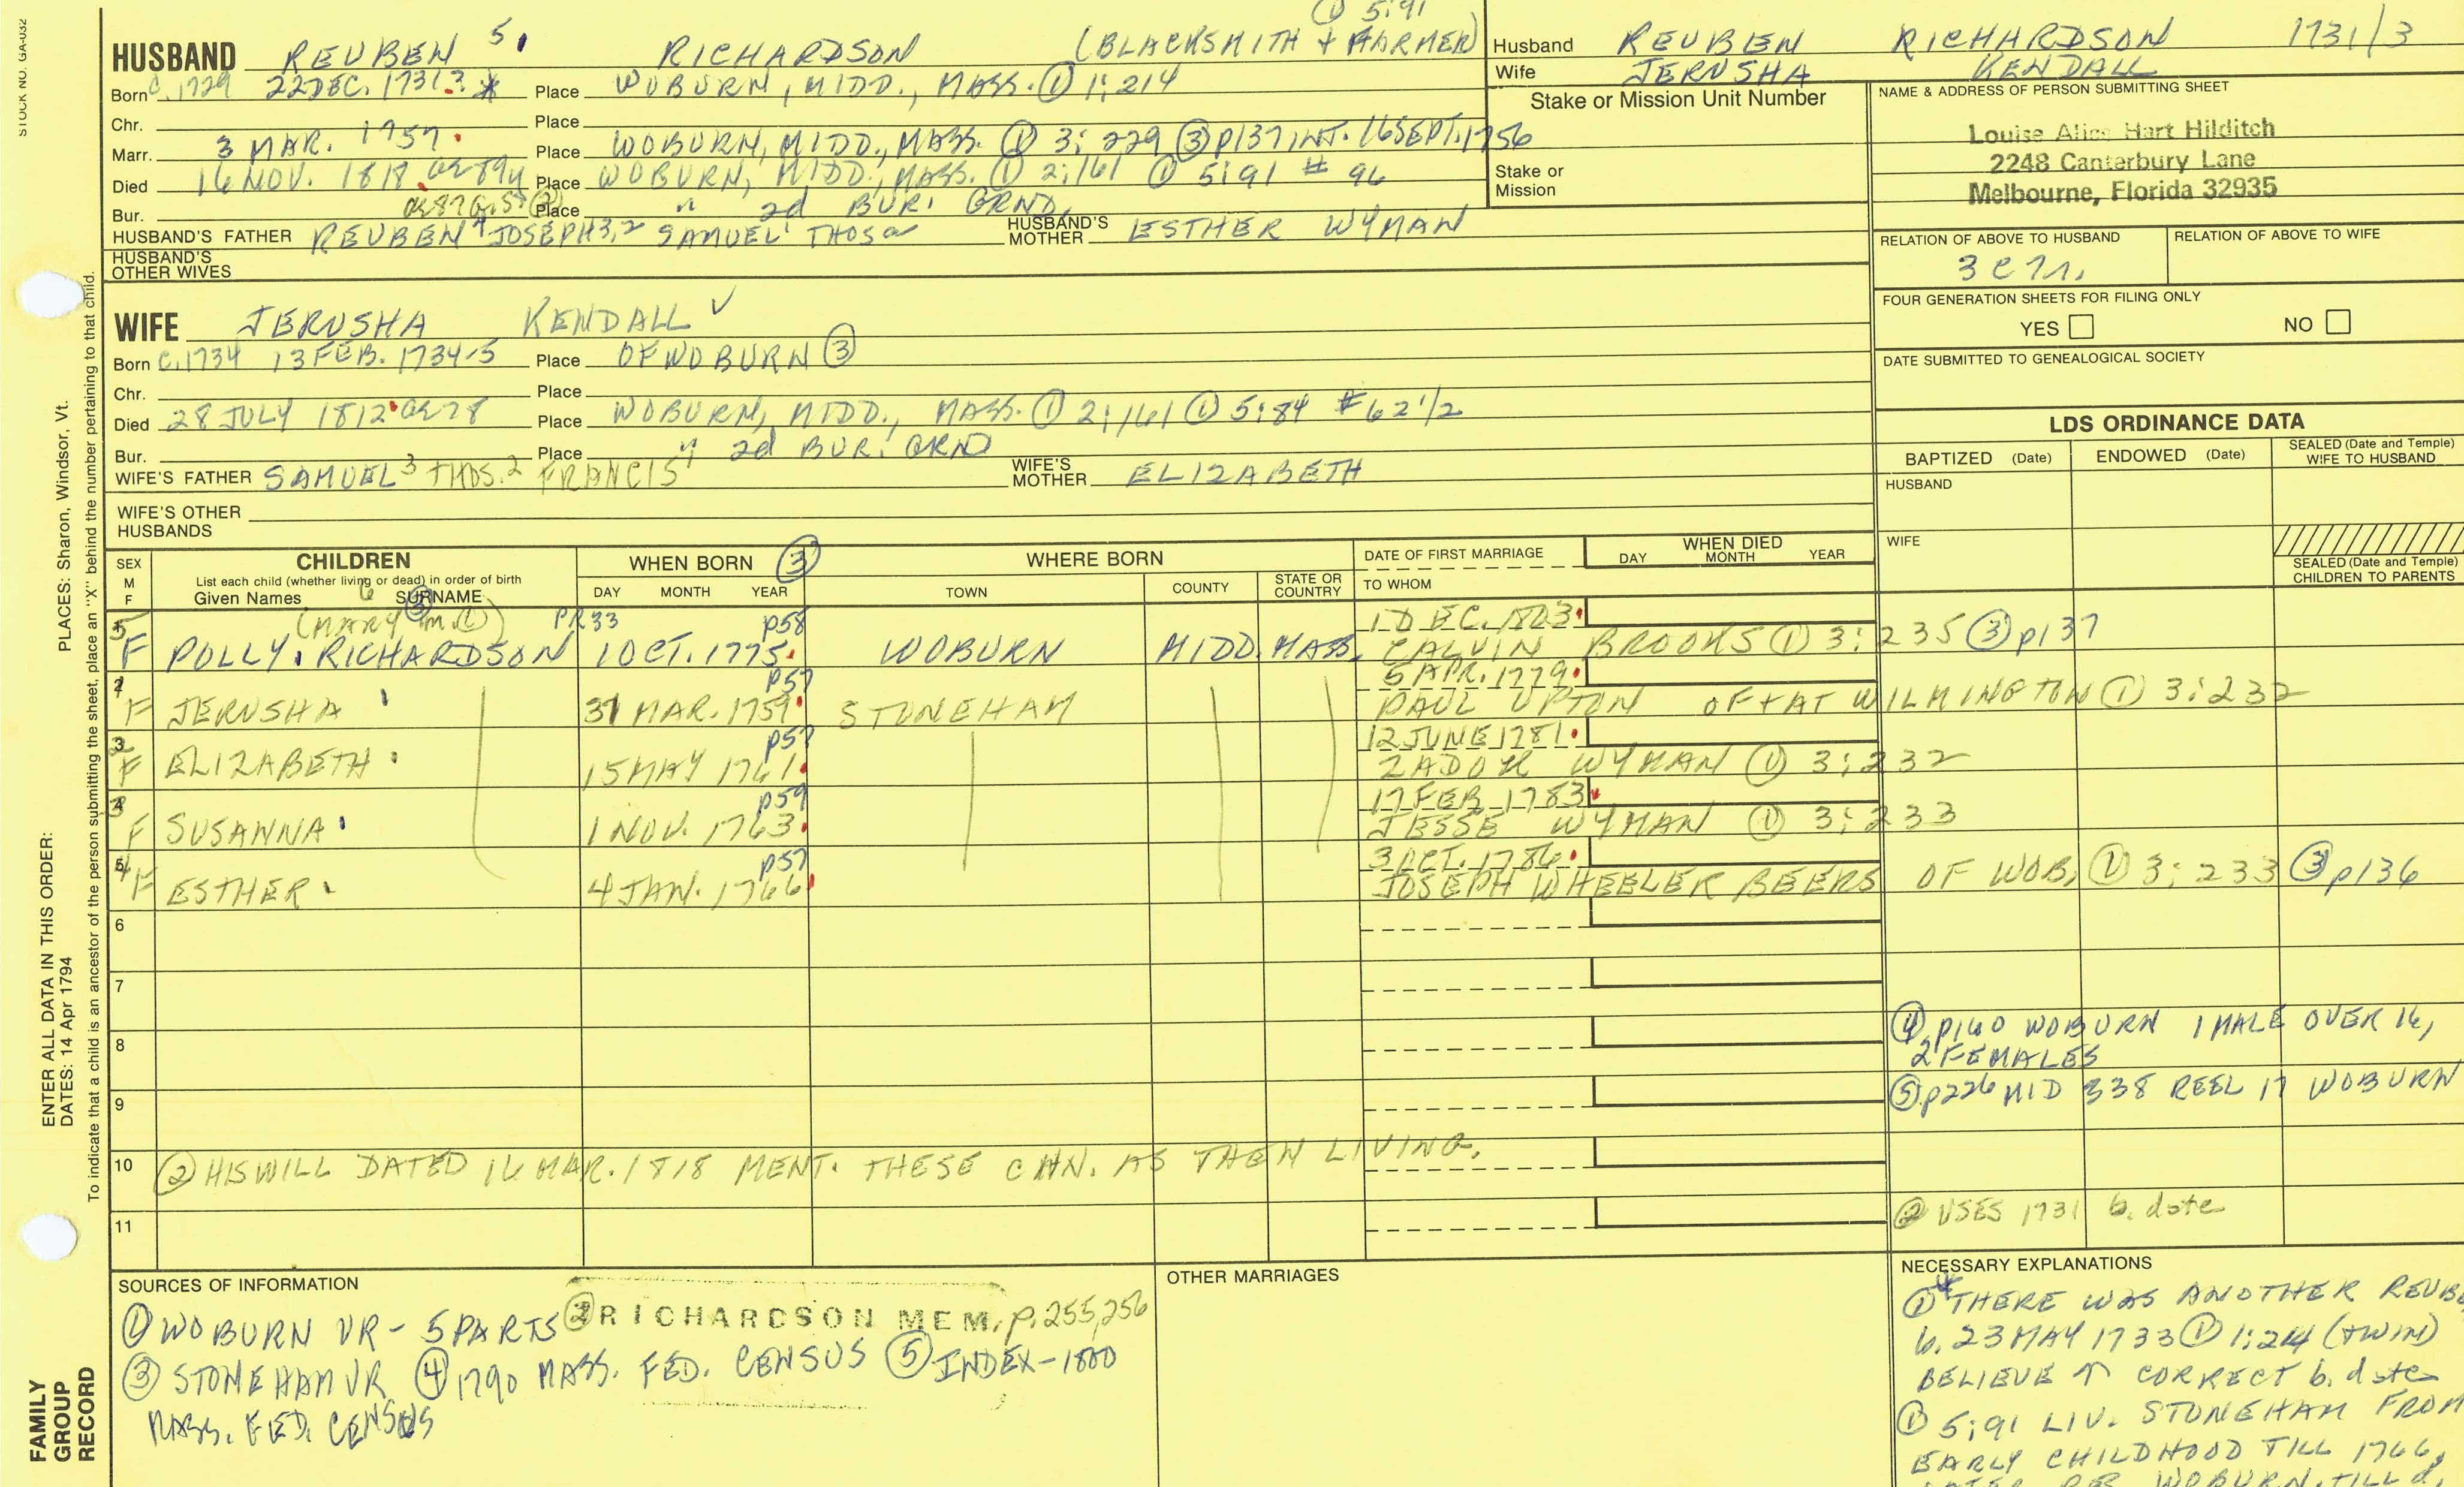 STOCK NO. GA-032
① 5:91
HUSBAND REUBEN 5. RICHARDSON (BLACKSMITH + FARMER)
Born C.1729 22 DEC. 1731? * Place WOBURN, MIDD., MASS. ① 1:214
Chr. Place
Marr. 3 MAR. 1757. Place WOBURN, MIDD., MASS. ① 3:229 ③ p137, INT. 16 SEPT. 1756
Died 16 NOV. 1818. ae 89y Place WOBURN, MIDD., MASS. ① 2:161 ① 5:91 # 96
Bur. ae 87 G.S. ② Place " 2d BUR. GRND.
HUSBAND'S FATHER REUBEN 4 JOSEPH 3,2 SAMUEL 1 THOS a HUSBAND'S MOTHER ESTHER WYMAN
HUSBAND'S OTHER WIVES
Husband REUBEN RICHARDSON 1731/3
Wife JERUSHA KENDALL
Stake or Mission Unit Number
Stake or Mission
NAME & ADDRESS OF PERSON SUBMITTING SHEET
Louise Alice Hart Hilditch
2248 Canterbury Lane
Melbourne, Florida 32935
RELATION OF ABOVE TO HUSBAND RELATION OF ABOVE TO WIFE
3 C 7 r.
FOUR GENERATION SHEETS FOR FILING ONLY
YES NO
DATE SUBMITTED TO GENEALOGICAL SOCIETY
WIFE JERUSHA KENDALL ✓
Born C.1734 13 FEB. 1734-5 Place OF WOBURN ③
Chr. Place
Died 28 JULY 1812 ae 78 Place WOBURN, MIDD., MASS. ① 2:161 ① 5:84 # 62 1/2
Bur. Place " 2d BUR. GRND
WIFE'S FATHER SAMUEL 3 THOS. 2 FRANCIS 1 WIFE'S MOTHER ELIZABETH
WIFE'S OTHER HUSBANDS
LDS ORDINANCE DATA
BAPTIZED (Date) ENDOWED (Date) SEALED (Date and Temple) WIFE TO HUSBAND
HUSBAND
WIFE
SEALED (Date and Temple) CHILDREN TO PARENTS
SEX M F
CHILDREN
List each child (whether living or dead) in order of birth
Given Names 6 SURNAME
WHEN BORN ③
DAY MONTH YEAR
WHERE BORN
TOWN COUNTY STATE OR COUNTRY
DATE OF FIRST MARRIAGE
TO WHOM
WHEN DIED
DAY MONTH YEAR
(MARY ③ m. ①) PR33 p58 1 DEC. 1803.
5 F POLLY. RICHARDSON 1 OCT. 1775. WOBURN MIDD. MASS. CALVIN BROOKS ① 3:235 ③ p137
p57 5 APR. 1779.
F JERUSHA 31 MAR. 1759. STONEHAM PAUL UPTON OF + AT WILMINGTON ① 3:232
p57 12 JUNE 1781.
F ELIZABETH. 15 MAY 1761. ZADOK WYMAN ① 3:232
p59 17 FEB 1783.
F SUSANNA. 1 NOV. 1763. JESSE WYMAN ① 3:233
p57 3 OCT. 1786.
F ESTHER. 4 JAN. 1766. JOSEPH WHEELER BEERS OF WOB. ① 3:233 ③ p136
6
7
8
9
④ p160 WOBURN 1 MALE OVER 16,
2 FEMALES
⑤ p226 MID 338 REEL 17 WOBURN
10 ② HIS WILL DATED 16 MAR. 1818 MENT. THESE CHN. AS THEN LIVING.
11
② USES 1731 b. date
SOURCES OF INFORMATION
① WOBURN VR - 5 PARTS ② RICHARDSON MEM. p. 255, 256
③ STONEHAM VR ④ 1790 MASS. FED. CENSUS ⑤ INDEX-1800
MASS. FED. CENSUS
OTHER MARRIAGES
NECESSARY EXPLANATIONS
① * THERE WAS ANOTHER REUBE
b. 23 MAY 1733 ① 1:214 (TWIN)
BELIEVE ↑ CORRECT b. date
① 5:91 LIV. STONEHAM FROM
EARLY CHILDHOOD TILL 1766,
WOBURN TILL d.
PLACES: Sharon, Windsor, Vt.
ENTER ALL DATA IN THIS ORDER:
DATES: 14 Apr 1794
To indicate that a child is an ancestor of the person submitting the sheet, place an "X" behind the number pertaining to that child.
FAMILY GROUP RECORD